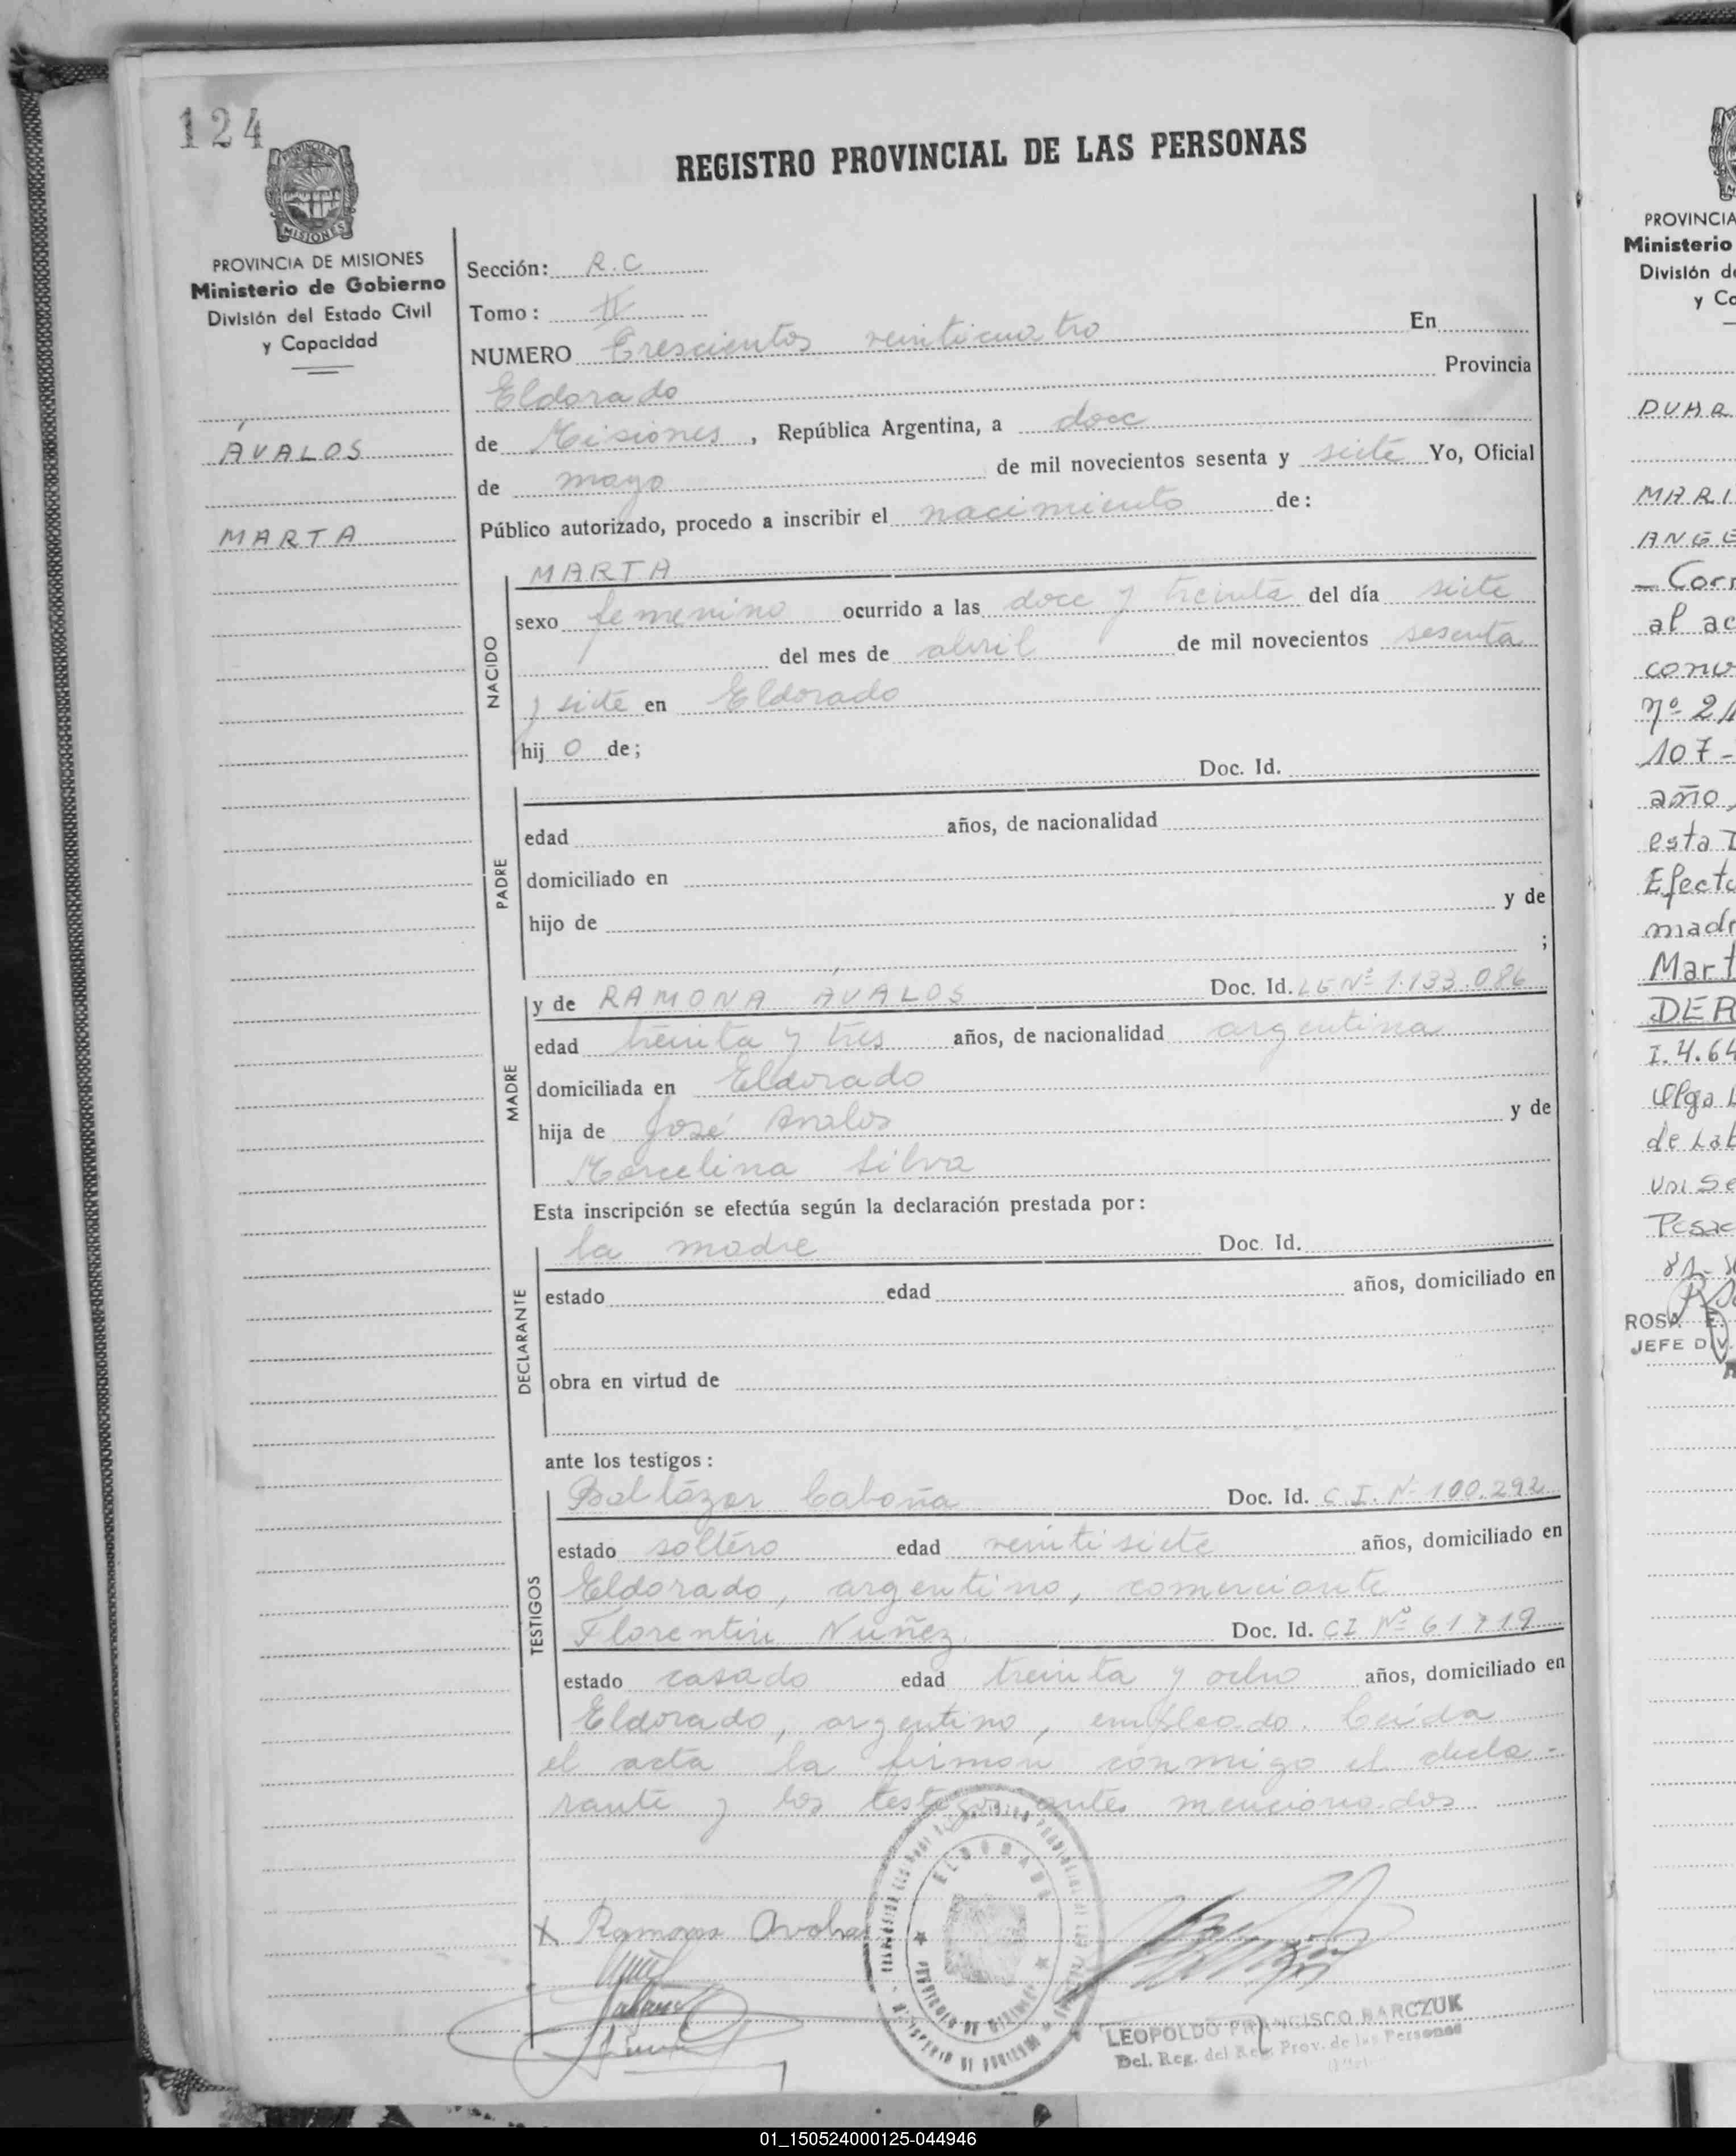 124
MISIONES
PROVINCIA DE MISIONES
Ministerio de Gobierno
División del Estado Civil
y Capacidad
ÁVALOS
MARTA
REGISTRO PROVINCIAL DE LAS PERSONAS
Sección: R.C
Tomo: II
NUMERO Trescientos veinticuatro En
Eldorado Provincia
de Misiones, República Argentina, a doce
de mayo de mil novecientos sesenta y siete Yo, Oficial
Público autorizado, procedo a inscribir el nacimiento de:
NACIDO
MARTA
sexo femenino ocurrido a las doce y treinta del día siete
del mes de abril de mil novecientos sesenta
y siete en Eldorado
hij o de;
PADRE
Doc. Id.
edad años, de nacionalidad
domiciliado en
hijo de y de
;
MADRE
y de RAMONA ÁVALOS Doc. Id. Nº 1.133.086
edad treinta y tres años, de nacionalidad argentina
domiciliada en Eldorado
hija de José Avalos y de
Marcelina Silva
Esta inscripción se efectúa según la declaración prestada por:
DECLARANTE
la madre Doc. Id.
estado edad años, domiciliado en
obra en virtud de
ante los testigos:
TESTIGOS
Baltázar Cabaña Doc. Id. C.I. Nº 100.292
estado soltero edad veintisiete años, domiciliado en
Eldorado, argentino, comerciante
Florentin Nuñez Doc. Id. CI Nº 61719
estado casado edad treinta y ocho años, domiciliado en
Eldorado, argentino, empleado. Leída
el acta la firman conmigo el decla-
rante y los testigos antes mencionados
x Ramona Avalos
ELDORADO
LEOPOLDO FRANCISCO BARCZUK
Del. Reg. del Reg. Prov. de las Personas
PROVINCIA
Ministerio
División de
y Ca
DUAR
MARI
ANGE
- Corr
al ac
conv
nº 21
107-
año,
esta D
Efectu
madr
Mart
DER
I.4.64
Olga L
de Lab
ROSA E.
JEFE DIV.
01_150524000125-044946